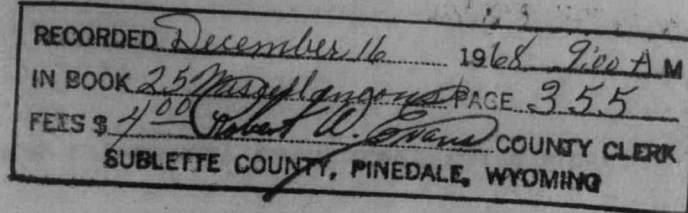 RECORDED December 16 1968 9:00 A M
IN BOOK 25 Miscellaneous PAGE 355
FEES $ 4 00 Robert W. Evans COUNTY CLERK
SUBLETTE COUNTY, PINEDALE, WYOMING